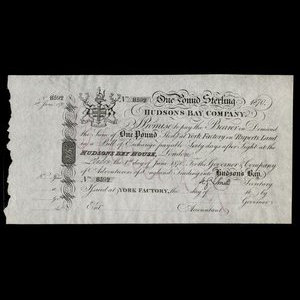 No. 8392 One Pound Sterling 1870
HUDSONS BAY COMPANY.
I Promise to pay the Bearer on Demand
the Sum of One Pound Sterling at York Factory in Ruperts Land
by a Bill of Exchange payable Sixty days after Sight at the
HUDSONS BAY HOUSE, London.
London the 1st day of June 1870 For the Governor & Company
of Adventurers of England trading into Hudsons Bay.
Secretary
Issued at YORK FACTORY, the day of 18 by
Ent. Accountant Governor